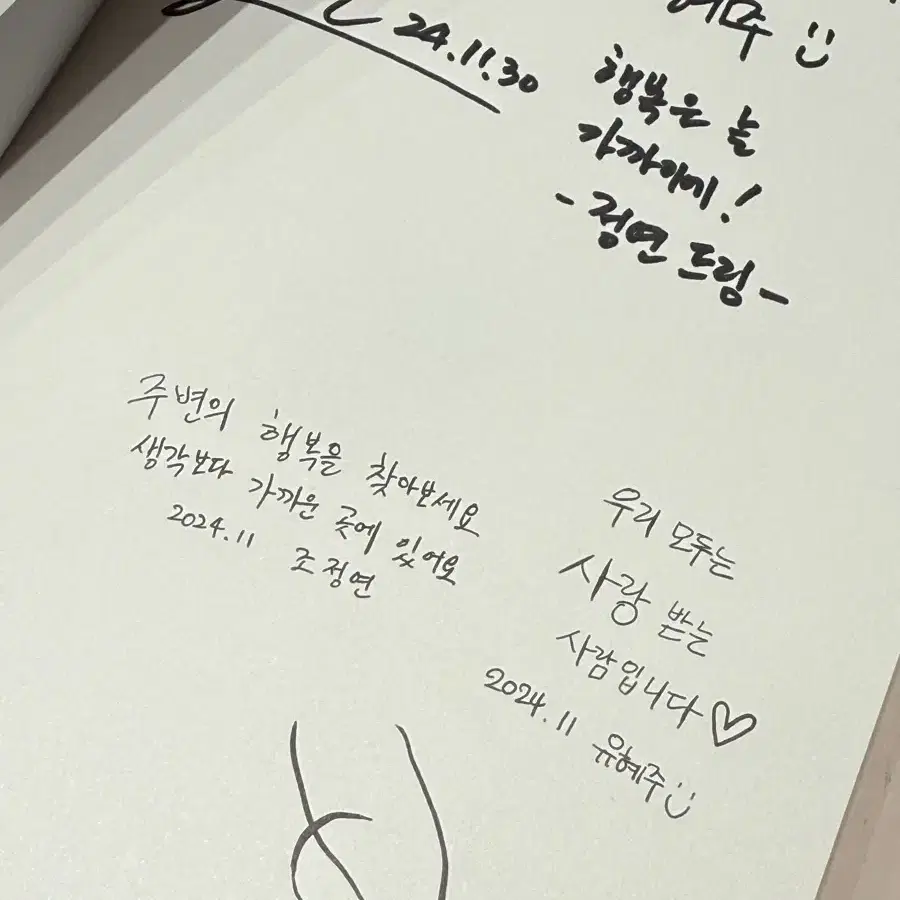 24.11.30
행복은 늘
가까이에!
- 정연 드림 -
주변의 행복을 찾아보세요
생각보다 가까운 곳에 있어요
2024.11 조정연
우리 모두는
사랑 받는
사람입니다♡
2024.11 유혜주